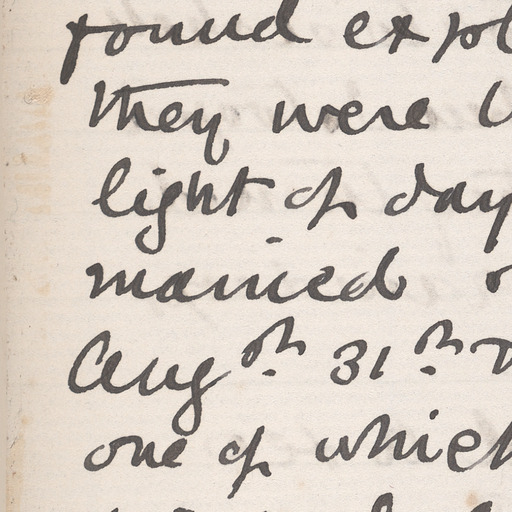 found expl
they were
light of day
married
Aug th 31 th
one of which